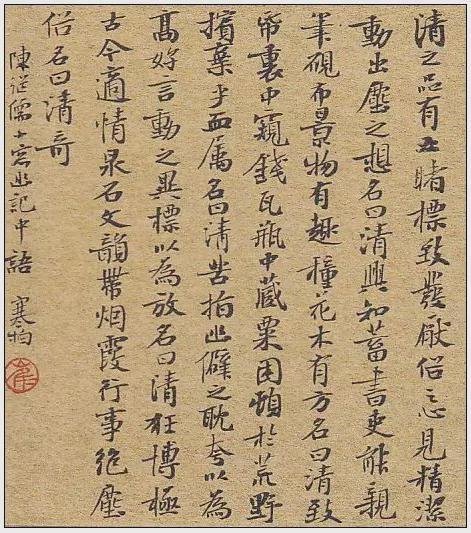 清之品有五睹標致發厭俗之心見精潔
動出塵之想名曰清興知蓄書史能親
筆硯布景物有趣種花木有方名曰清致
帋裹中窺錢瓦瓶中藏粟困頓於荒野
擯棄乎血属名曰清苦指幽僻之耽夸以為
高好言動之異標以為放名曰清狂博極
古今適情泉石文韻帶烟霞行事絶塵
俗名曰清奇
陳継儒小窓幽記中語 寒